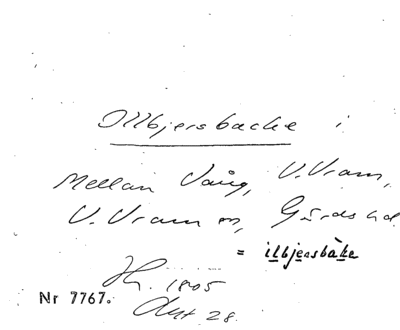 Illbjersbacke i
Mellan Vång, V. Vram,
V. Vram sn, Gärds hd.
= ilbjensbake
Hl. 1805
Akt 28.
Nr 7767.